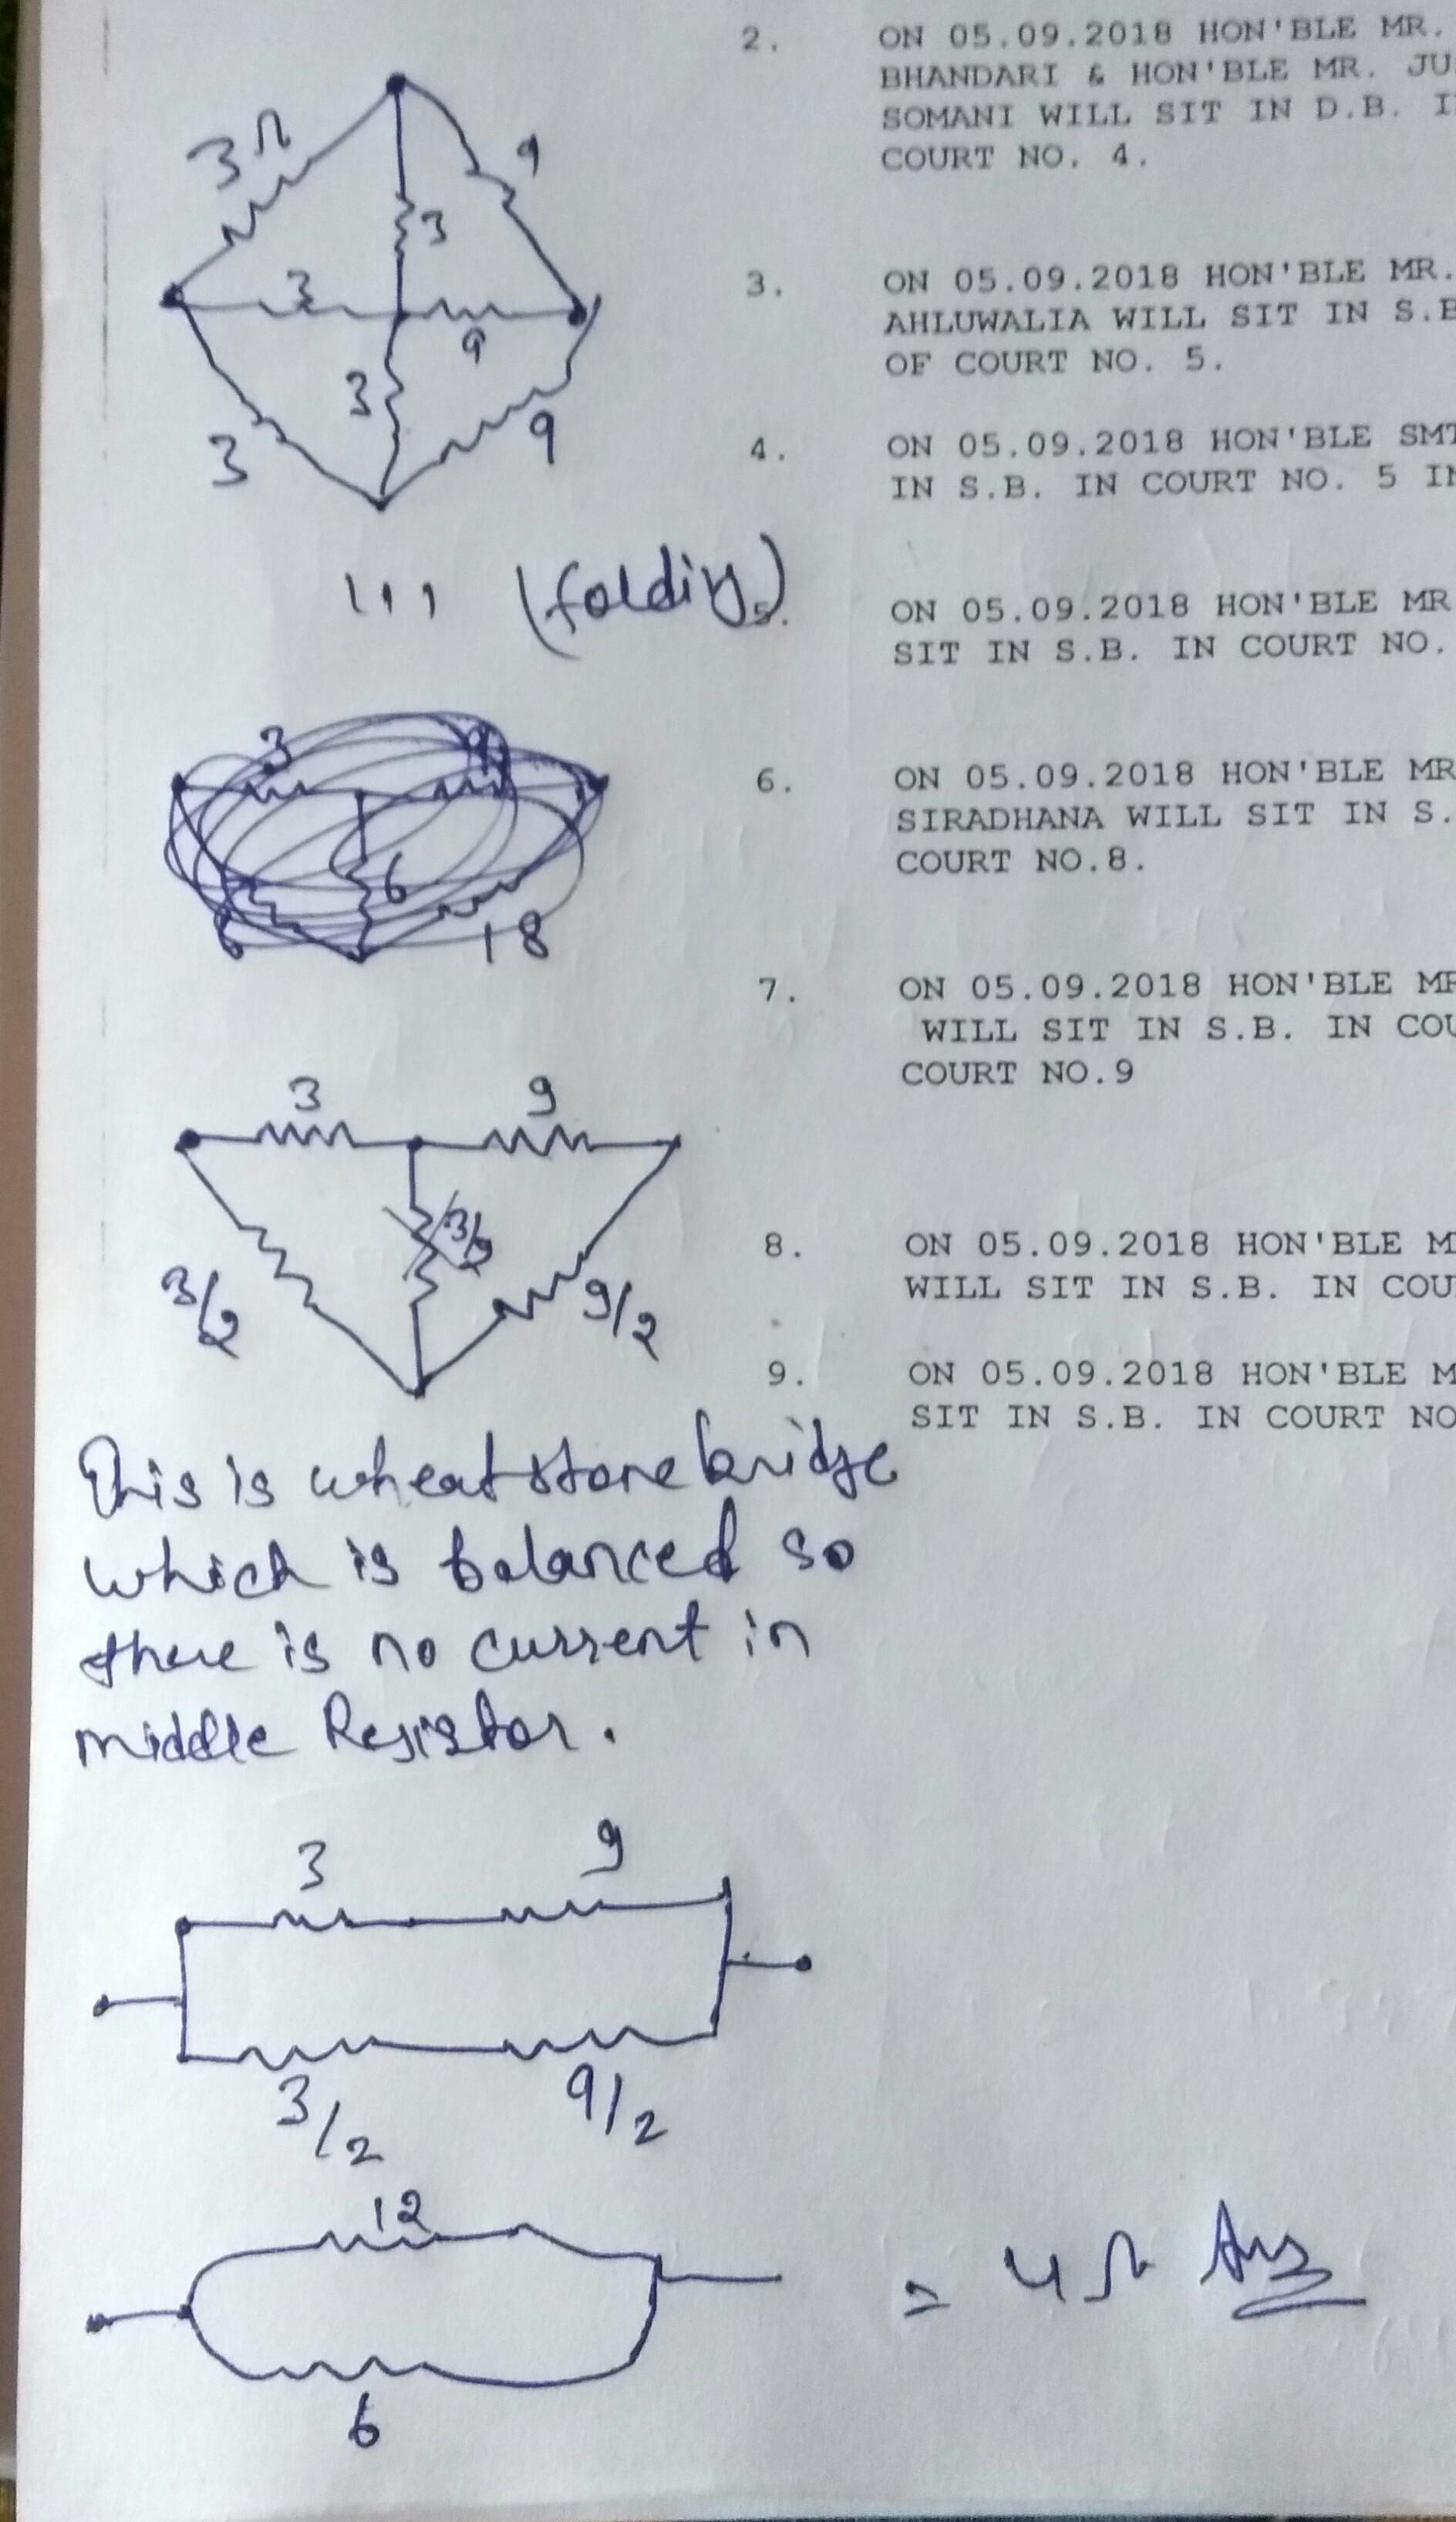 2. ON 05.09.2018 HON'BLE MR.
BHANDARI & HON'BLE MR. JU
SOMANI WILL SIT IN D.B. I
COURT NO. 4.
3. ON 05.09.2018 HON'BLE MR.
AHLUWALIA WILL SIT IN S.B
OF COURT NO. 5.
4. ON 05.09.2018 HON'BLE SMT
IN S.B. IN COURT NO. 5 IN
5. ON 05.09.2018 HON'BLE MR
SIT IN S.B. IN COURT NO.
6. ON 05.09.2018 HON'BLE MR
SIRADHANA WILL SIT IN S.
COURT NO.8.
7. ON 05.09.2018 HON'BLE MR
WILL SIT IN S.B. IN COU
COURT NO.9
8. ON 05.09.2018 HON'BLE M
WILL SIT IN S.B. IN COU
9. ON 05.09.2018 HON'BLE M
SIT IN S.B. IN COURT NO
3Ω
9
3
3
9
3
3
9
(folding)
3
9
6
6
18
3
9
3/2
3/2
9/2
This is wheatstone bridge
which is balanced so
there is no current in
middle Resistor.
3
9
3/2
9/2
12
6
= 4Ω Ans